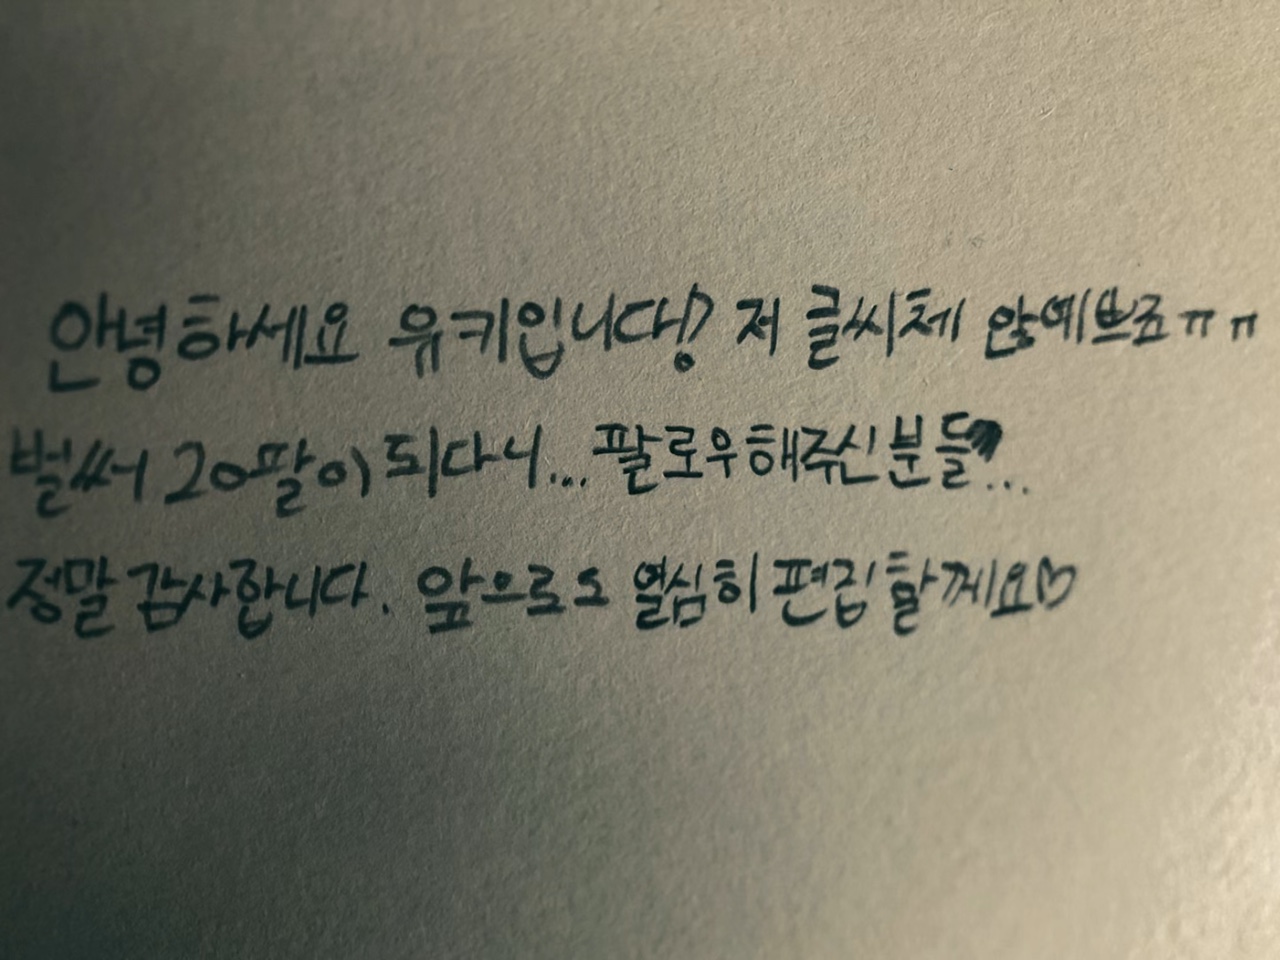 안녕하세요 유키입니다! 저 글씨체 않예쁘죠ㅠㅠ
벌써 20팔이 되다니... 팔로우해주신분들...
정말 감사합니다. 앞으로도 열심히 편집할께요♡